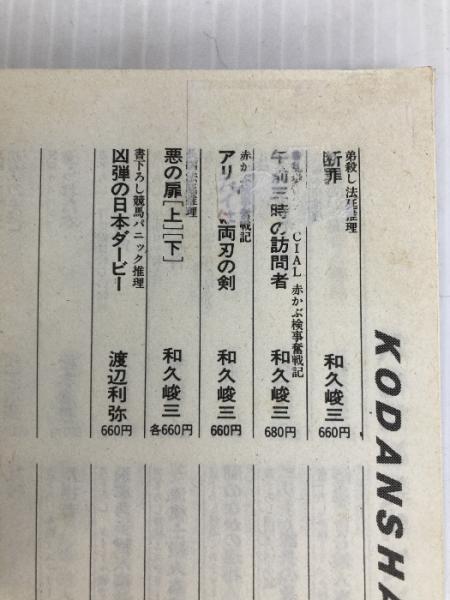 弟殺し法廷推理
断罪
和久峻三
660円
CIAL 赤かぶ検事奮戦記
午前三時の訪問者
和久峻三
680円
赤か 戦記
アリ 両刃の剣
和久峻三
660円
法廷推理
悪の扉[上][下]
和久峻三
各660円
書下ろし競馬パニック推理
凶弾の日本ダービー
渡辺利弥
660円
KODANSHA